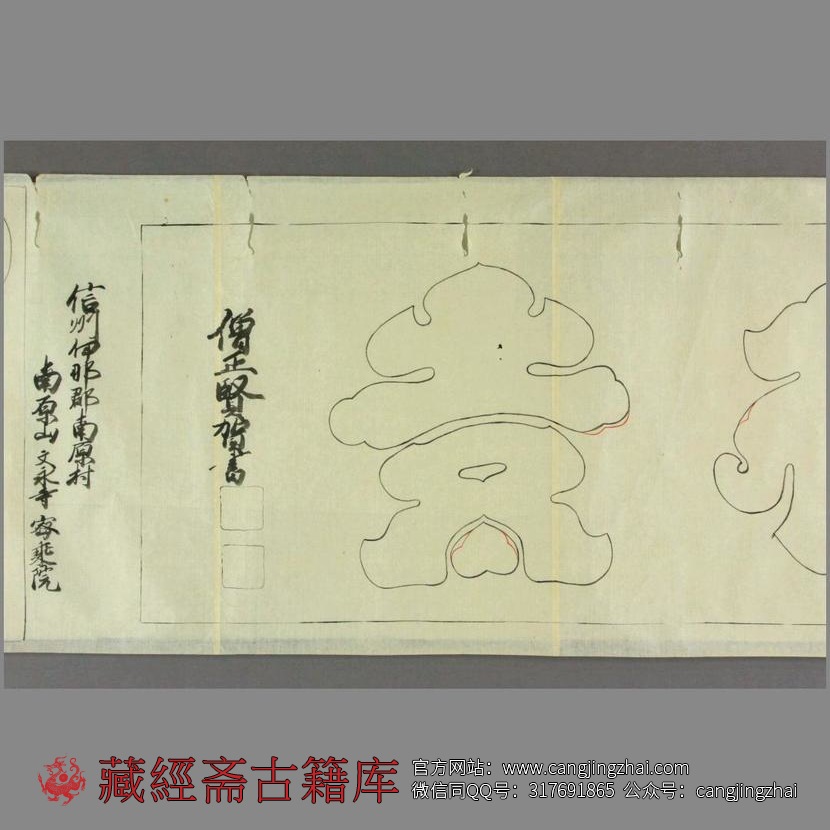 僧正賢賀書
信州伊那郡南原村
南原山文永寺密乗院
藏經斋古籍库
官方网站：www.cangjingzhai.com
微信同QQ号：317691865 公众号：cangjingzhai